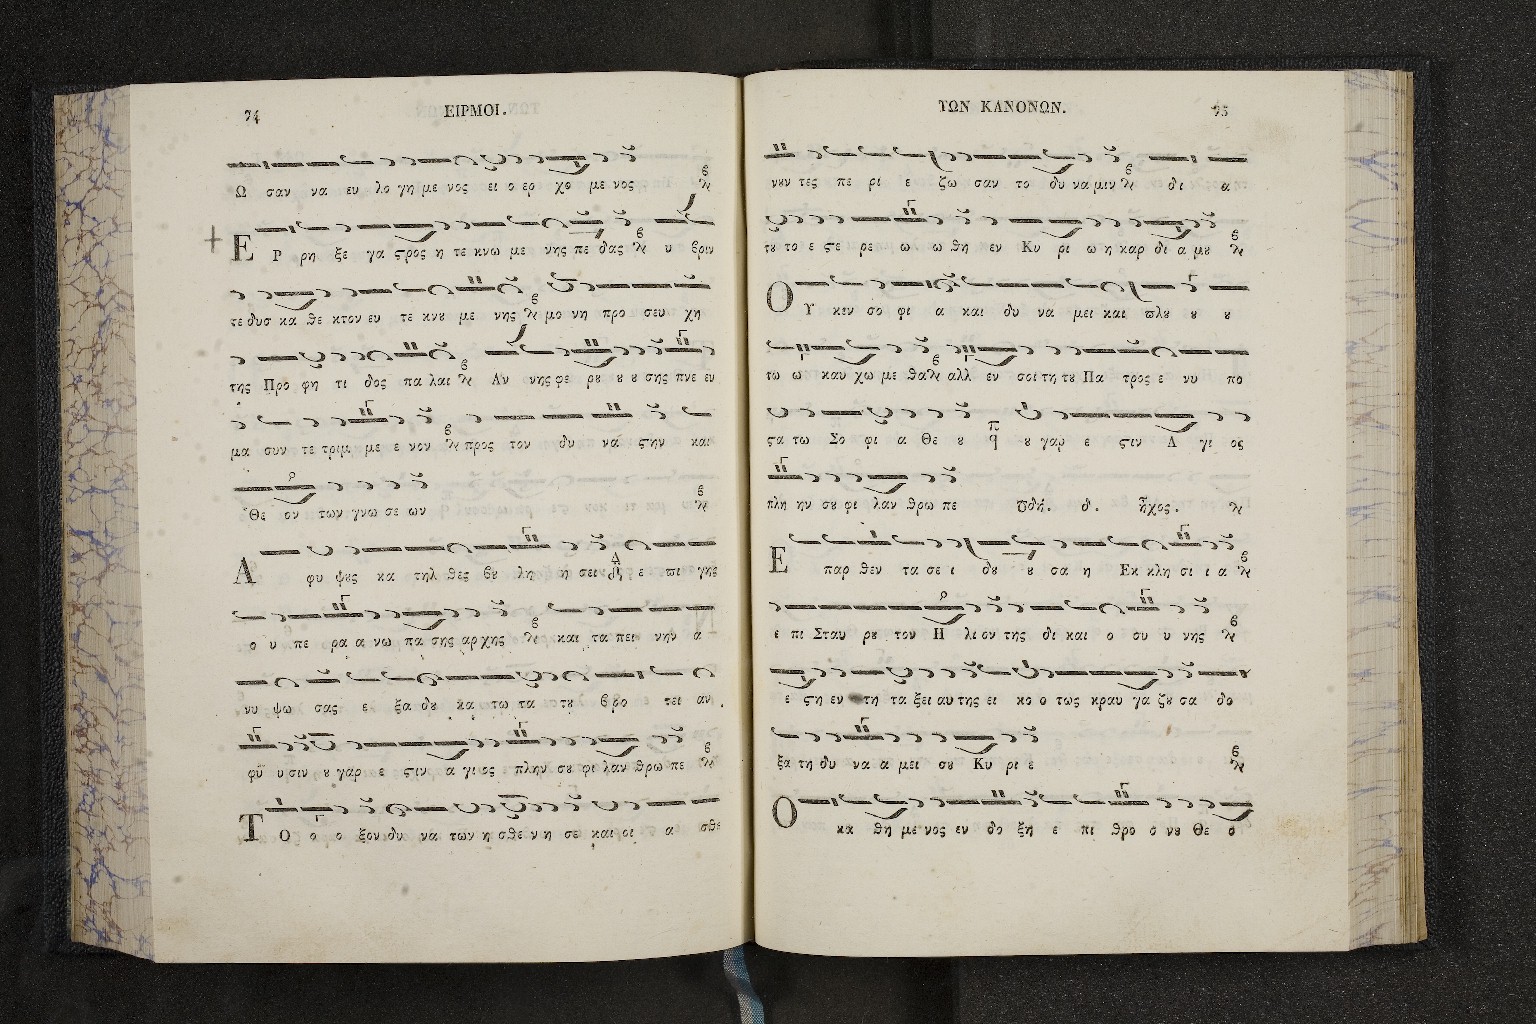 74 ΕΙΡΜΟΙ.
Ω σαν να ευ λο γη με νος ει ο ερ χο με νος
Ε Ρ ρη ξε γα ςρος η τε κνω με νης πε δας υ βριν
τε δυσ κα θε κτον ευ τε κνȣ με νης μο νη προ σευ χη
της Προ φη τι δος πα λαι Αν νης φε ρȣ ȣ ȣ σης πνε ευ
μα συν τε τριμ με ε νον προς τον δυ να ςην και
Θε ον των γνω σε ων
Α φυ ψȣς κα τηλ θες βȣ λη η σει ε πι γης
ο υ πε ρα α νω πα σης αρ χης και τα πει νην α
νυ ψω σας ε ξα δȣ κα τω τα τȣ βρο τει αν
φυ υ σιν ȣ γαρ ε ςιν α γι ος πλην σȣ φι λαν θρω πε
Τ Ο ο ο ξον δυ να των η σθε νη σε και οι α σθε
ΤΩΝ ΚΑΝΟΝΩΝ. 75
νȣν τες πε ρι ε ζω σαν το δυ να μιν δι α
τȣ το ε ςε ρε ω ω θη εν Κυ ρι ω η καρ δι α μȣ
Ο Υ κεν σο φι α και δυ να μει και πλȣ ȣ ȣ
τω ω καυ χω με θα αλλ εν σοι τη τȣ Πα τρος ε νυ πο
ςα τω Σο φι α Θε ȣ ȣ γαρ ε ςιν Α γι ος
πλη ην σȣ φι λαν θρω πε ᾨδή. δ'. ἦχος.
Ε παρ θεν τα σε ι δȣ ȣ σα η Εκ κλη σι ι α
ε πι Σταυ ρȣ τον Η λι ον της δι και ο συ υ νης
ε ςη εν τη τα ξει αυ της ει κο ο τως κραυ γα ζȣ σα δο
ξα τη δυ να α μει σȣ Κυ ρι ε
Ο κα θη με νος εν δο ξη ε πι θρο ο νȣ Θε ο